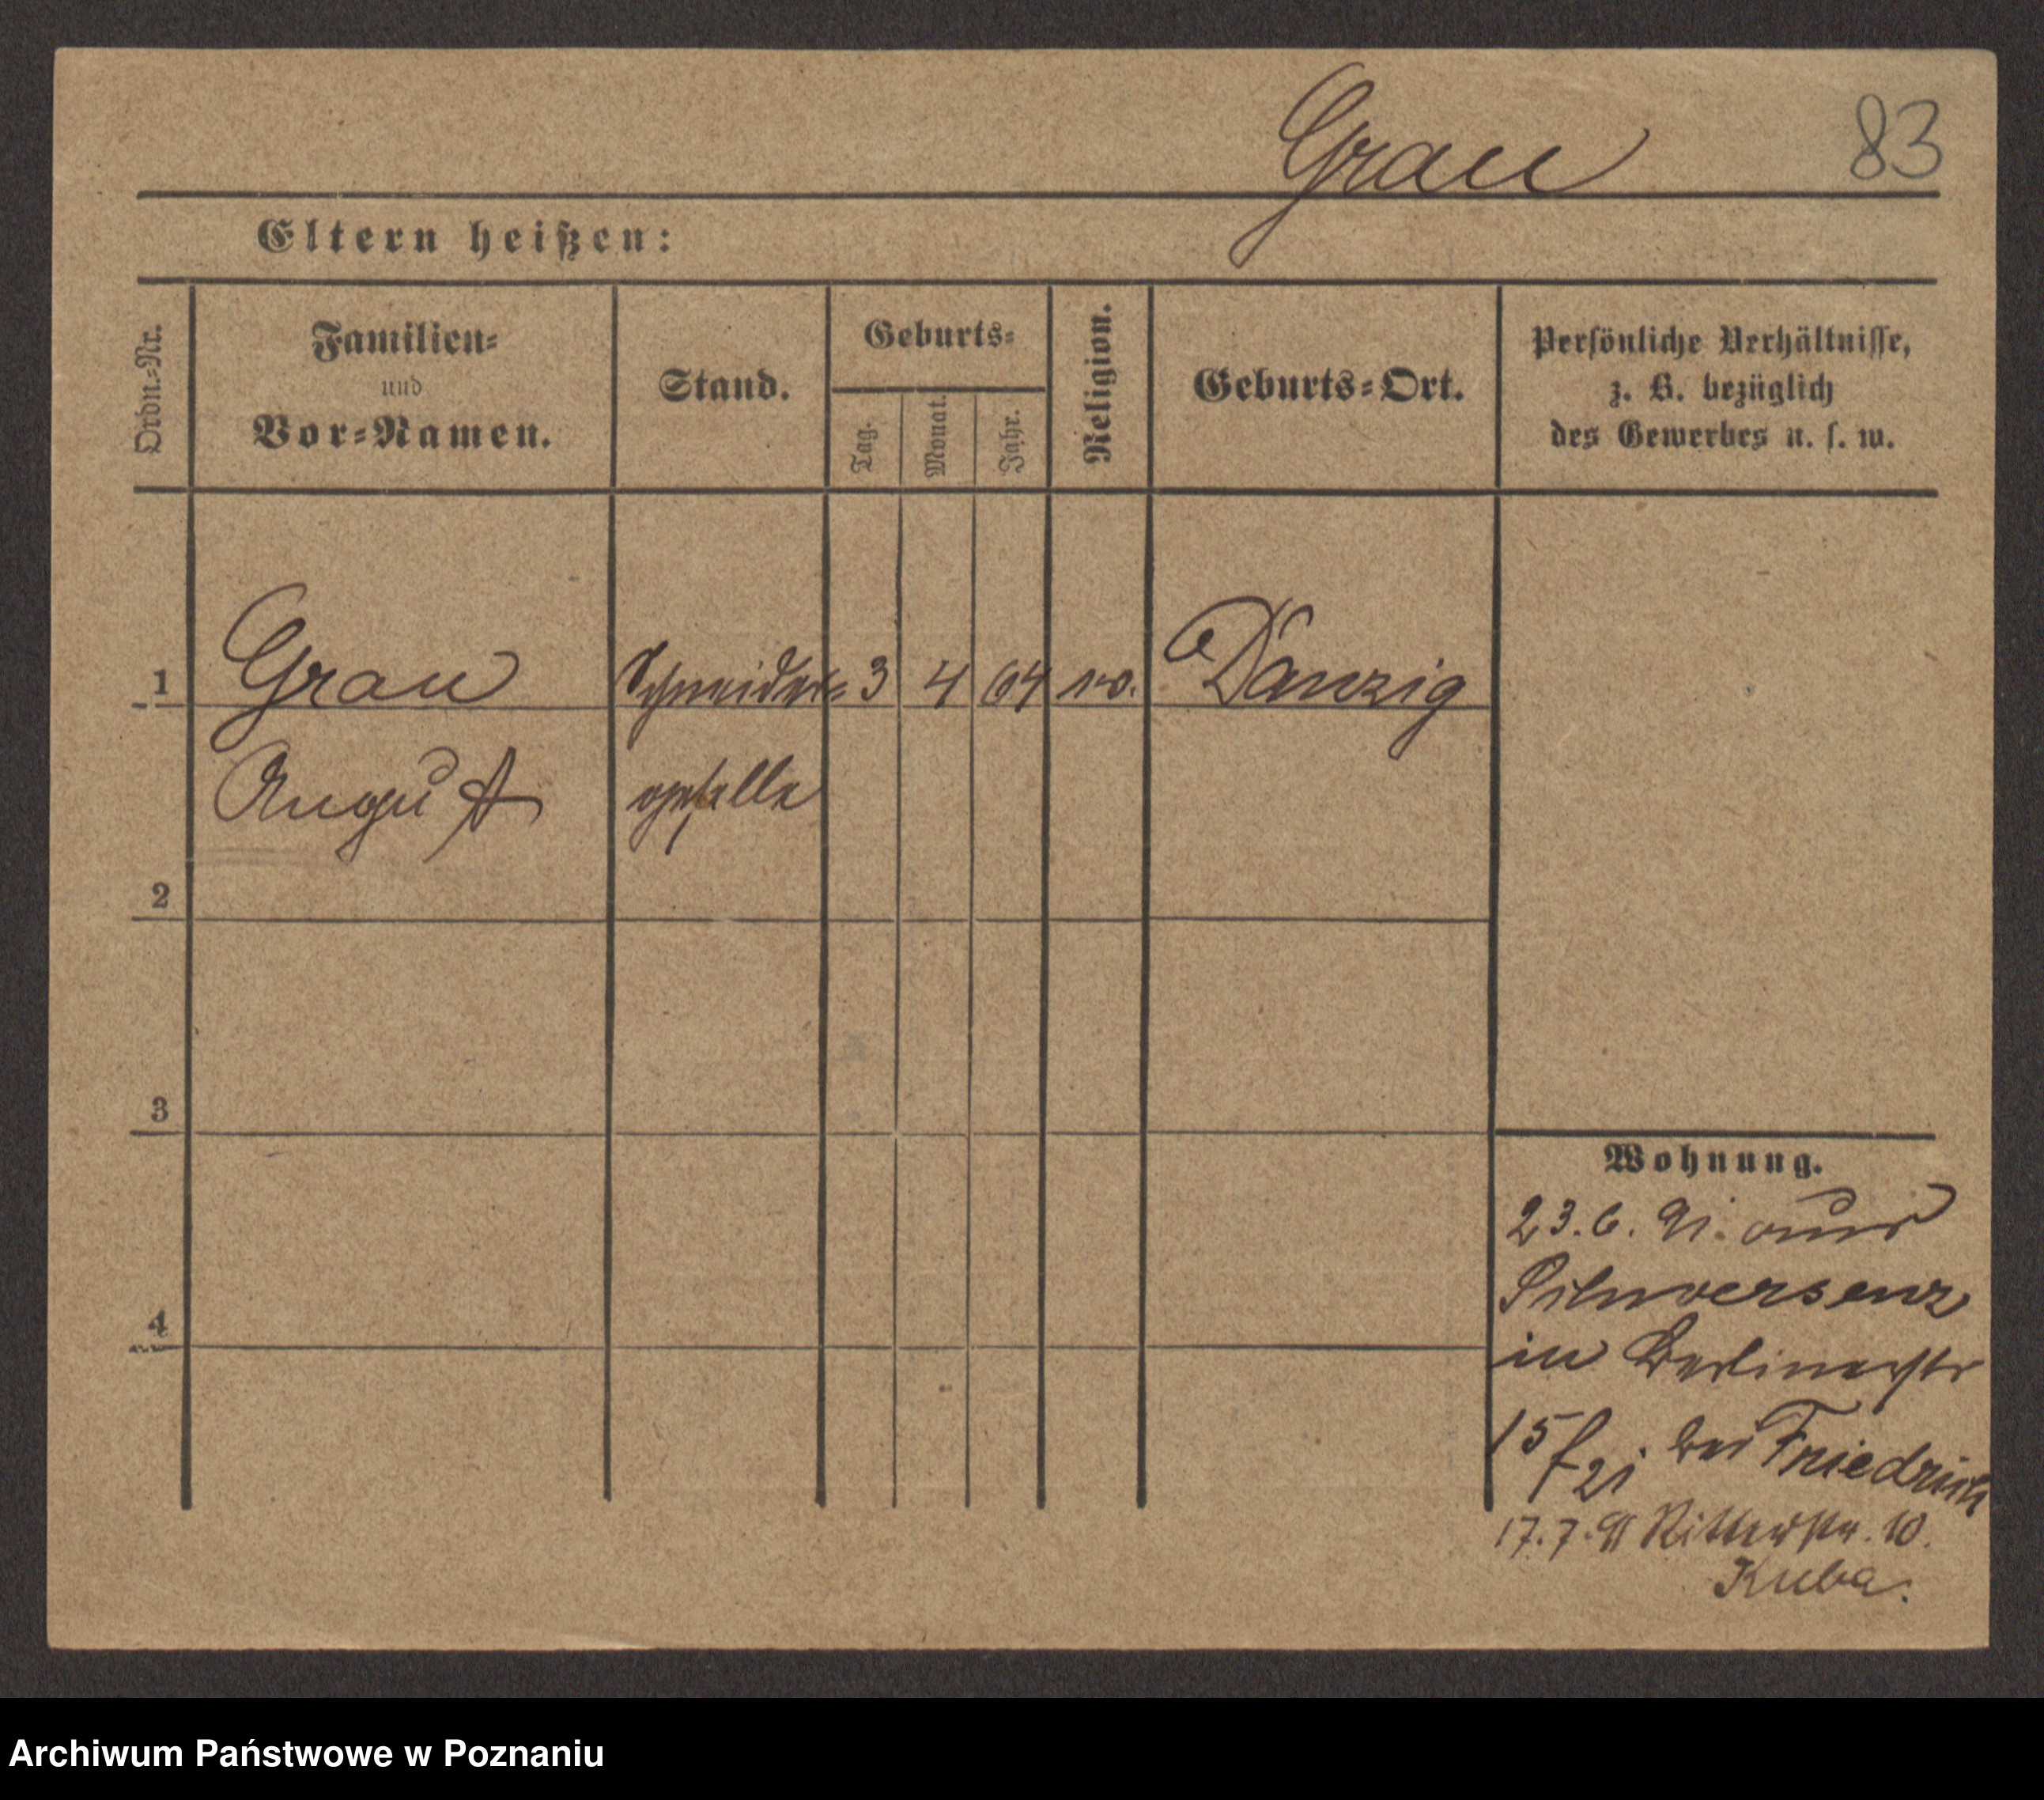 Grau
83
Eltern heißen:
Ordn.-Nr.
Familien-
und
Vor-Namen.
Stand.
Geburts-
Tag.
Monat.
Jahr.
Religion.
Geburts-Ort.
Persönliche Verhältnisse,
z. B. bezüglich
des Gewerbes u. s. w.
1 Grau Schneider- 3 4 64 Danzig
August geselle
2
3
4
Wohnung.
23. 6. 91. aus
in Berlinerstr
15/21 bei Friedrich
17. 7. 91 Ritterstr. 10.
Kuba.
Archiwum Państwowe w Poznaniu